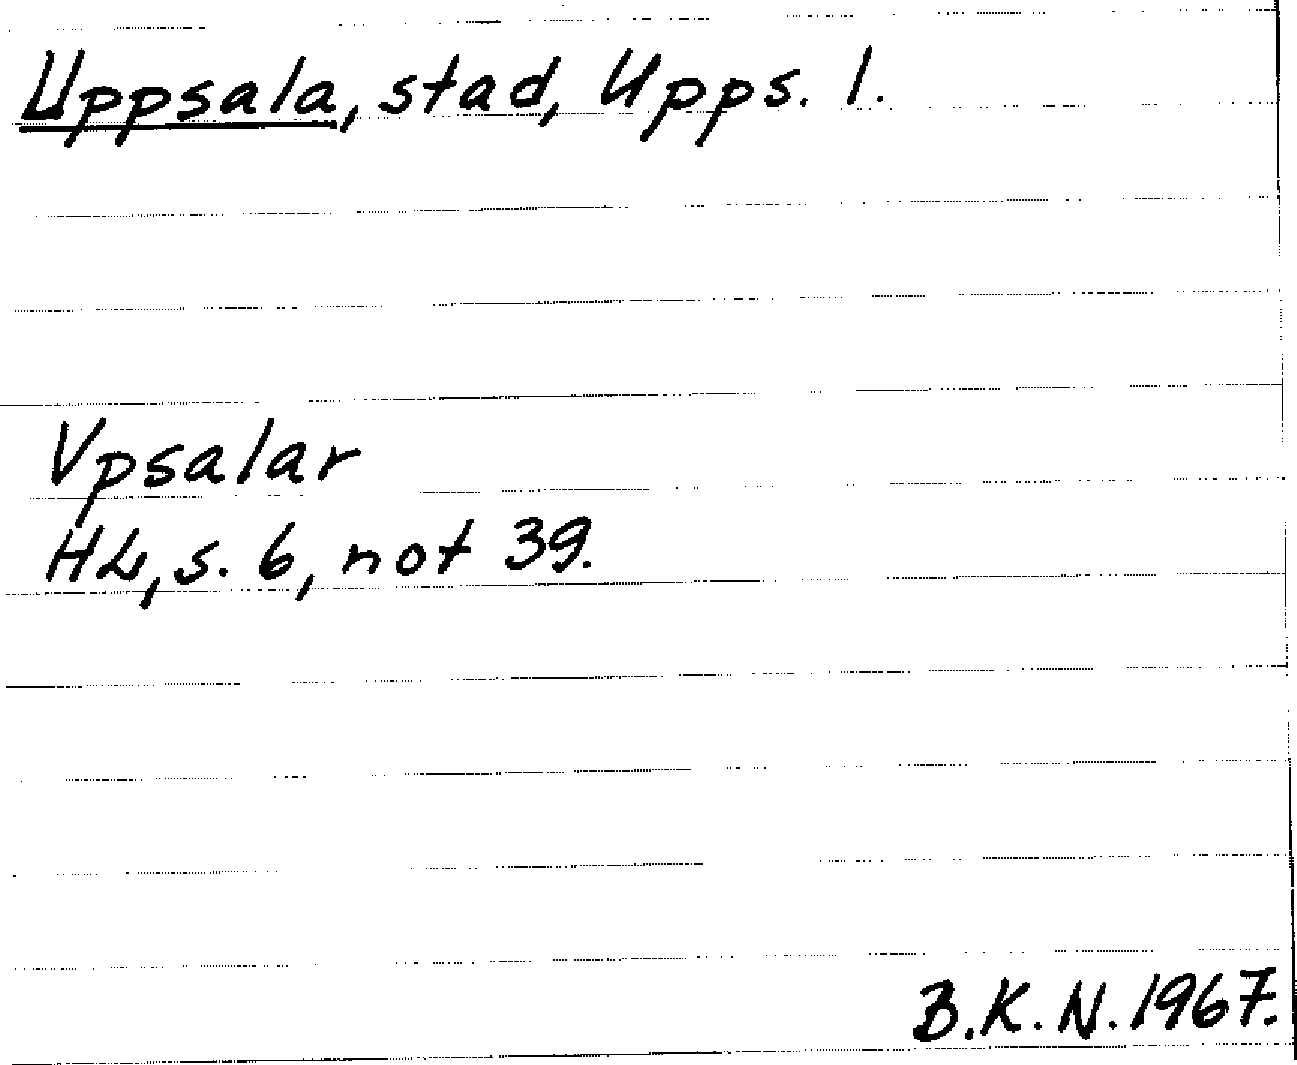 Uppsala, stad, Upps. l.
Vpsalar
HL, s. 6, not 39.
B.K.N. 1967.